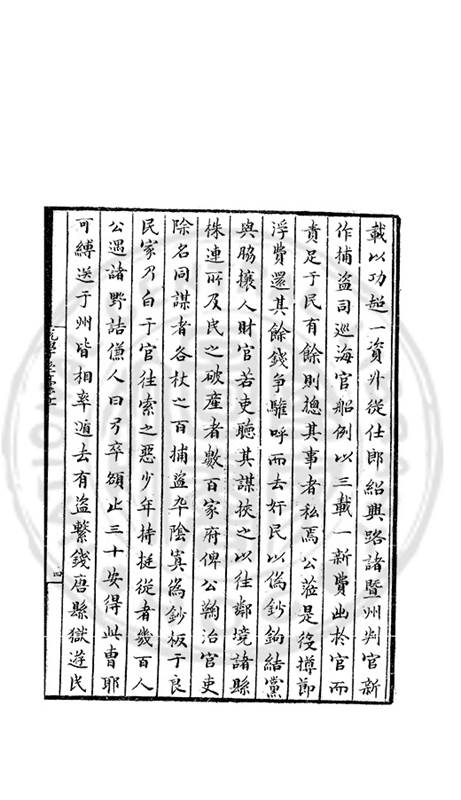 載以功超一資升從仕郎紹興路諸暨州判官新
作捕盜司巡海官船例以三載一新費出於官而
責足于民有餘則總其事者私焉公蒞是役撙節
浮費還其餘錢爭驩呼而去奸民以偽鈔鉤結黨
與脅攘人財官若吏聽其謀挾之以往鄰境諸縣
株連所及民之破產者數百家府俾公鞫治官吏
除名同謀者各杖之百捕盜卒陰寘偽鈔板于良
民家乃白于官往索之惡少年持挺從者幾百人
公遇諸野詰傔人曰弓卒額止三十安得此曹耶
可縛送于州皆相率遁去有盜繫錢唐縣獄遊民
四